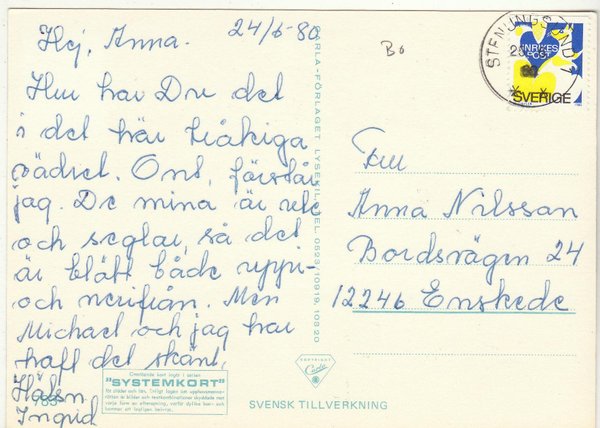 Hej, Anna. 24/6-80
Hur har Du det
i det här tråkiga
vädret. Ont, förstår
jag. De mina är ute
och seglar, så det
är blått både uppi-
och nerifrån. Men
Michael och jag har
haft det skönt.
Hälsn.
Ingrid
783
Omstående kort ingår i serien
"SYSTEMKORT"
CARLA-FÖRLAGET LYSEKIL TEL 0523/10919, 10820
COPYRIGHT
Carla
SVENSK TILLVERKNING
Bo
STENUNGSUND 1
80
INRIKES
POST
SVERIGE
Frk
Anna Nilsson
Bordsvägen 24
12246 Enskede